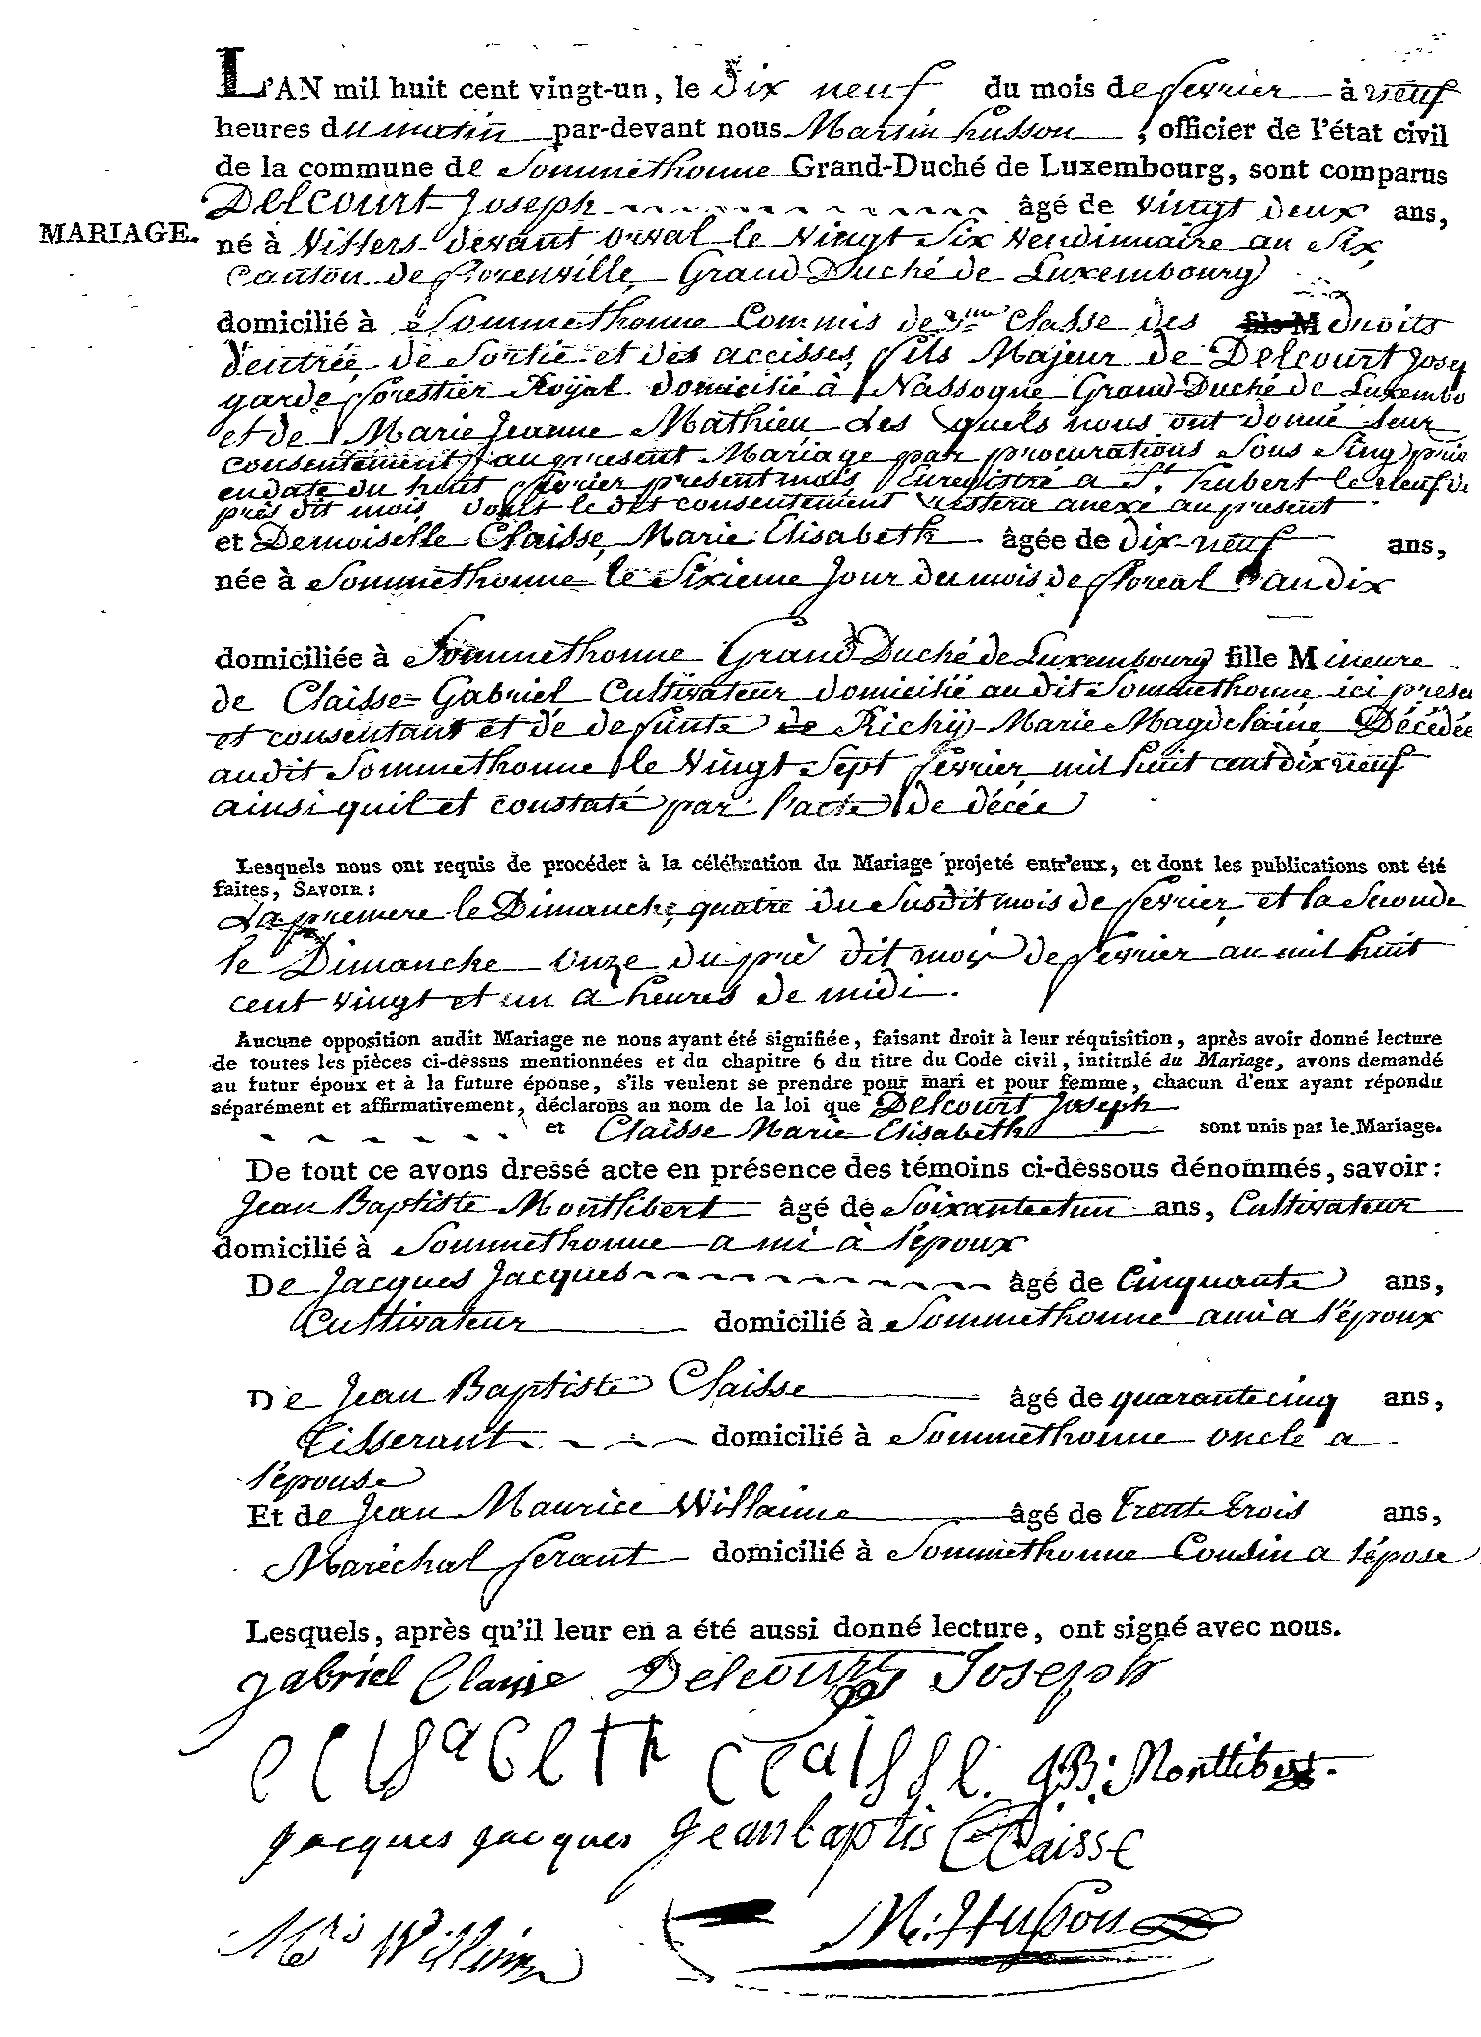 L'AN mil huit cent vingt-un, le dix neuf du mois de fevrier à neuf
heures du matin par-devant nous Martin husson, officier de l'état civil
de la commune de Sommethonne Grand-Duché de Luxembourg, sont comparus
Delcourt Joseph âgé de vingt deux ans,
MARIAGE.
né à Villers devant orval le vingt six vendimiaire an six,
canton de florenville, Grand Duché de Luxembourg
domicilié à Sommethonne Commis de 3me Classe des fils M droits
d'entrée de Sortie et des accisses, fils Majeur de Delcourt Josep
garde forestier Royal domicilié à Nassogne Grand Duché de Luxembo
et de Marie Jeanne Mathieu des quels nous ont donné leur
consentement au present Mariage par procurations sous sing priv
en date du huit fevrier present mois, Enregistré a St. hubert le neuf du
près dit mois, dont le dit consentement restera anexe au present
et Demoiselle Claisse, Marie Elisabeth âgée de dix-neuf ans,
née à Sommethonne le Sixieme Jour du mois de floreal an dix
domiciliée à Sommethonne Grand Duché de Luxembourg fille Mineure
de Claisse Gabriel Cultivateur domicilié au dit Sommethonne ici presen
et consentant et de defunte de Richÿ Marie Magdelaine Décédée
audit Sommethonne le vingt sept fevrier mil huit cent dix neuf
ainsi quil et constaté par l'acte de décée
Lesquels nous ont requis de procéder à la célébration du Mariage projeté entr'eux, et dont les publications ont été
faites, SAVOIR:
La premere le Dimanche, quatre du susdit mois de fevrier, et la Seconde
le Dimanche onze du pré dit mois de fevrier an mil huit
cent vingt et un a heures de midi.
Aucune opposition audit Mariage ne nous ayant été signifiée, faisant droit à leur réquisition, après avoir donné lecture
de toutes les pièces ci-dessus mentionnées et du chapitre 6 du titre du Code civil, intitulé du Mariage, avons demandé
au futur époux et à la future épouse, s'ils veulent se prendre pour mari et pour femme, chacun d'eux ayant répondu
séparément et affirmativement, déclarons au nom de la loi que Delcourt Joseph
et Claisse Marie Elisabeth sont unis par le Mariage.
De tout ce avons dressé acte en présence des témoins ci-dessous dénommés, savoir:
Jean Baptiste Montlibert âgé de Soixanteetun ans, Cultivateur
domicilié à Sommethonne ami à l'époux
De Jacques Jacques âgé de Cinquante ans,
Cultivateur domicilié à Sommethonne ami a l'époux
De Jean Baptiste Claisse âgé de quarantecinq ans,
Tisserant domicilié à Sommethonne oncle a
l'épouse
Et de Jean Maurice Willaime âgé de Trente trois ans,
Maréchal ferant domicilié à Sommethonne Cousin a l'épose
Lesquels, après qu'il leur en a été aussi donné lecture, ont signé avec nous.
gabriel Claisse Delcourt Joseph
elisabeth claisse. JB: Montlibert.
jacques jacques Jean baptis Claisse
Mris Willaim M: Husson